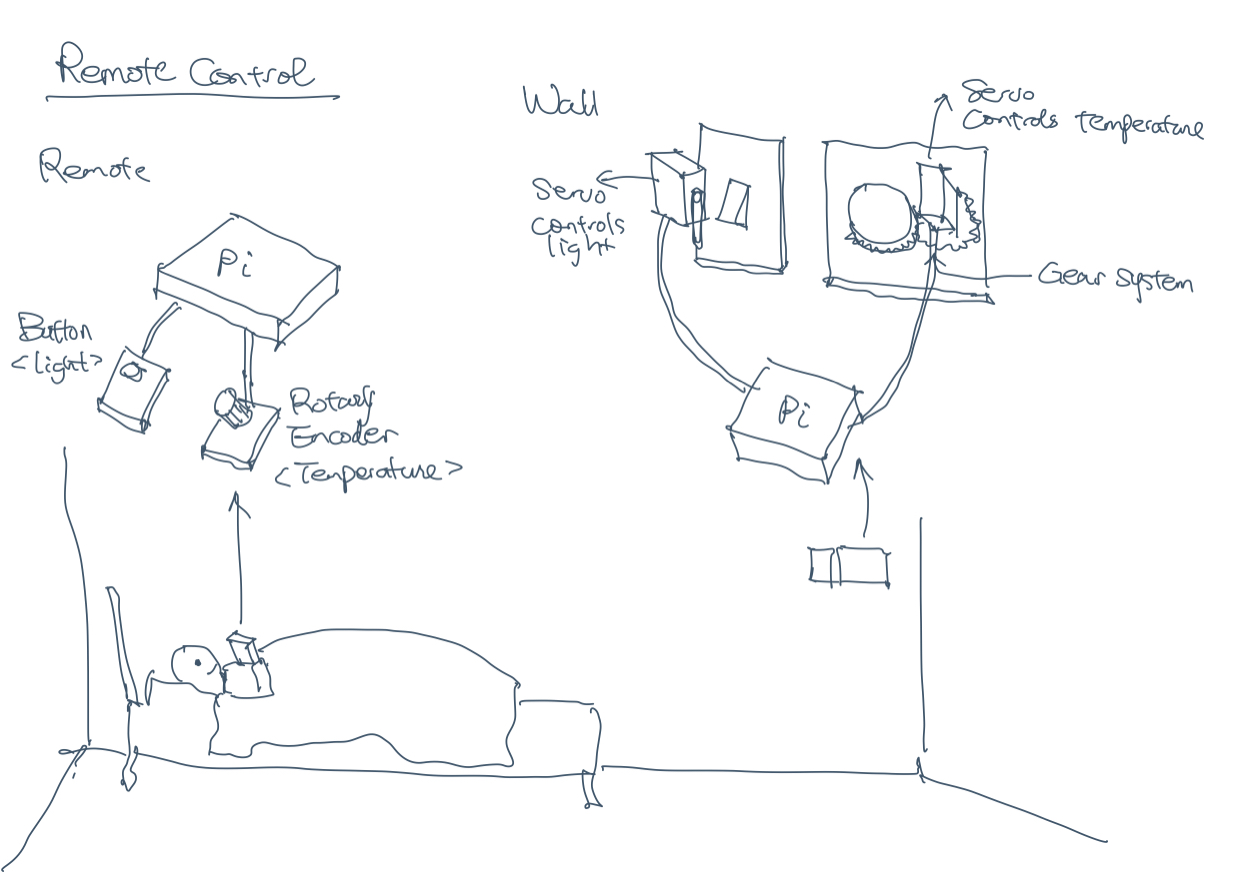 Remote Control
Remote
Pi
Button
<light>
Rotary
Encoder
<Temperature>
Wall
Servo
controls
light
Servo
controls temperature
Gear system
Pi